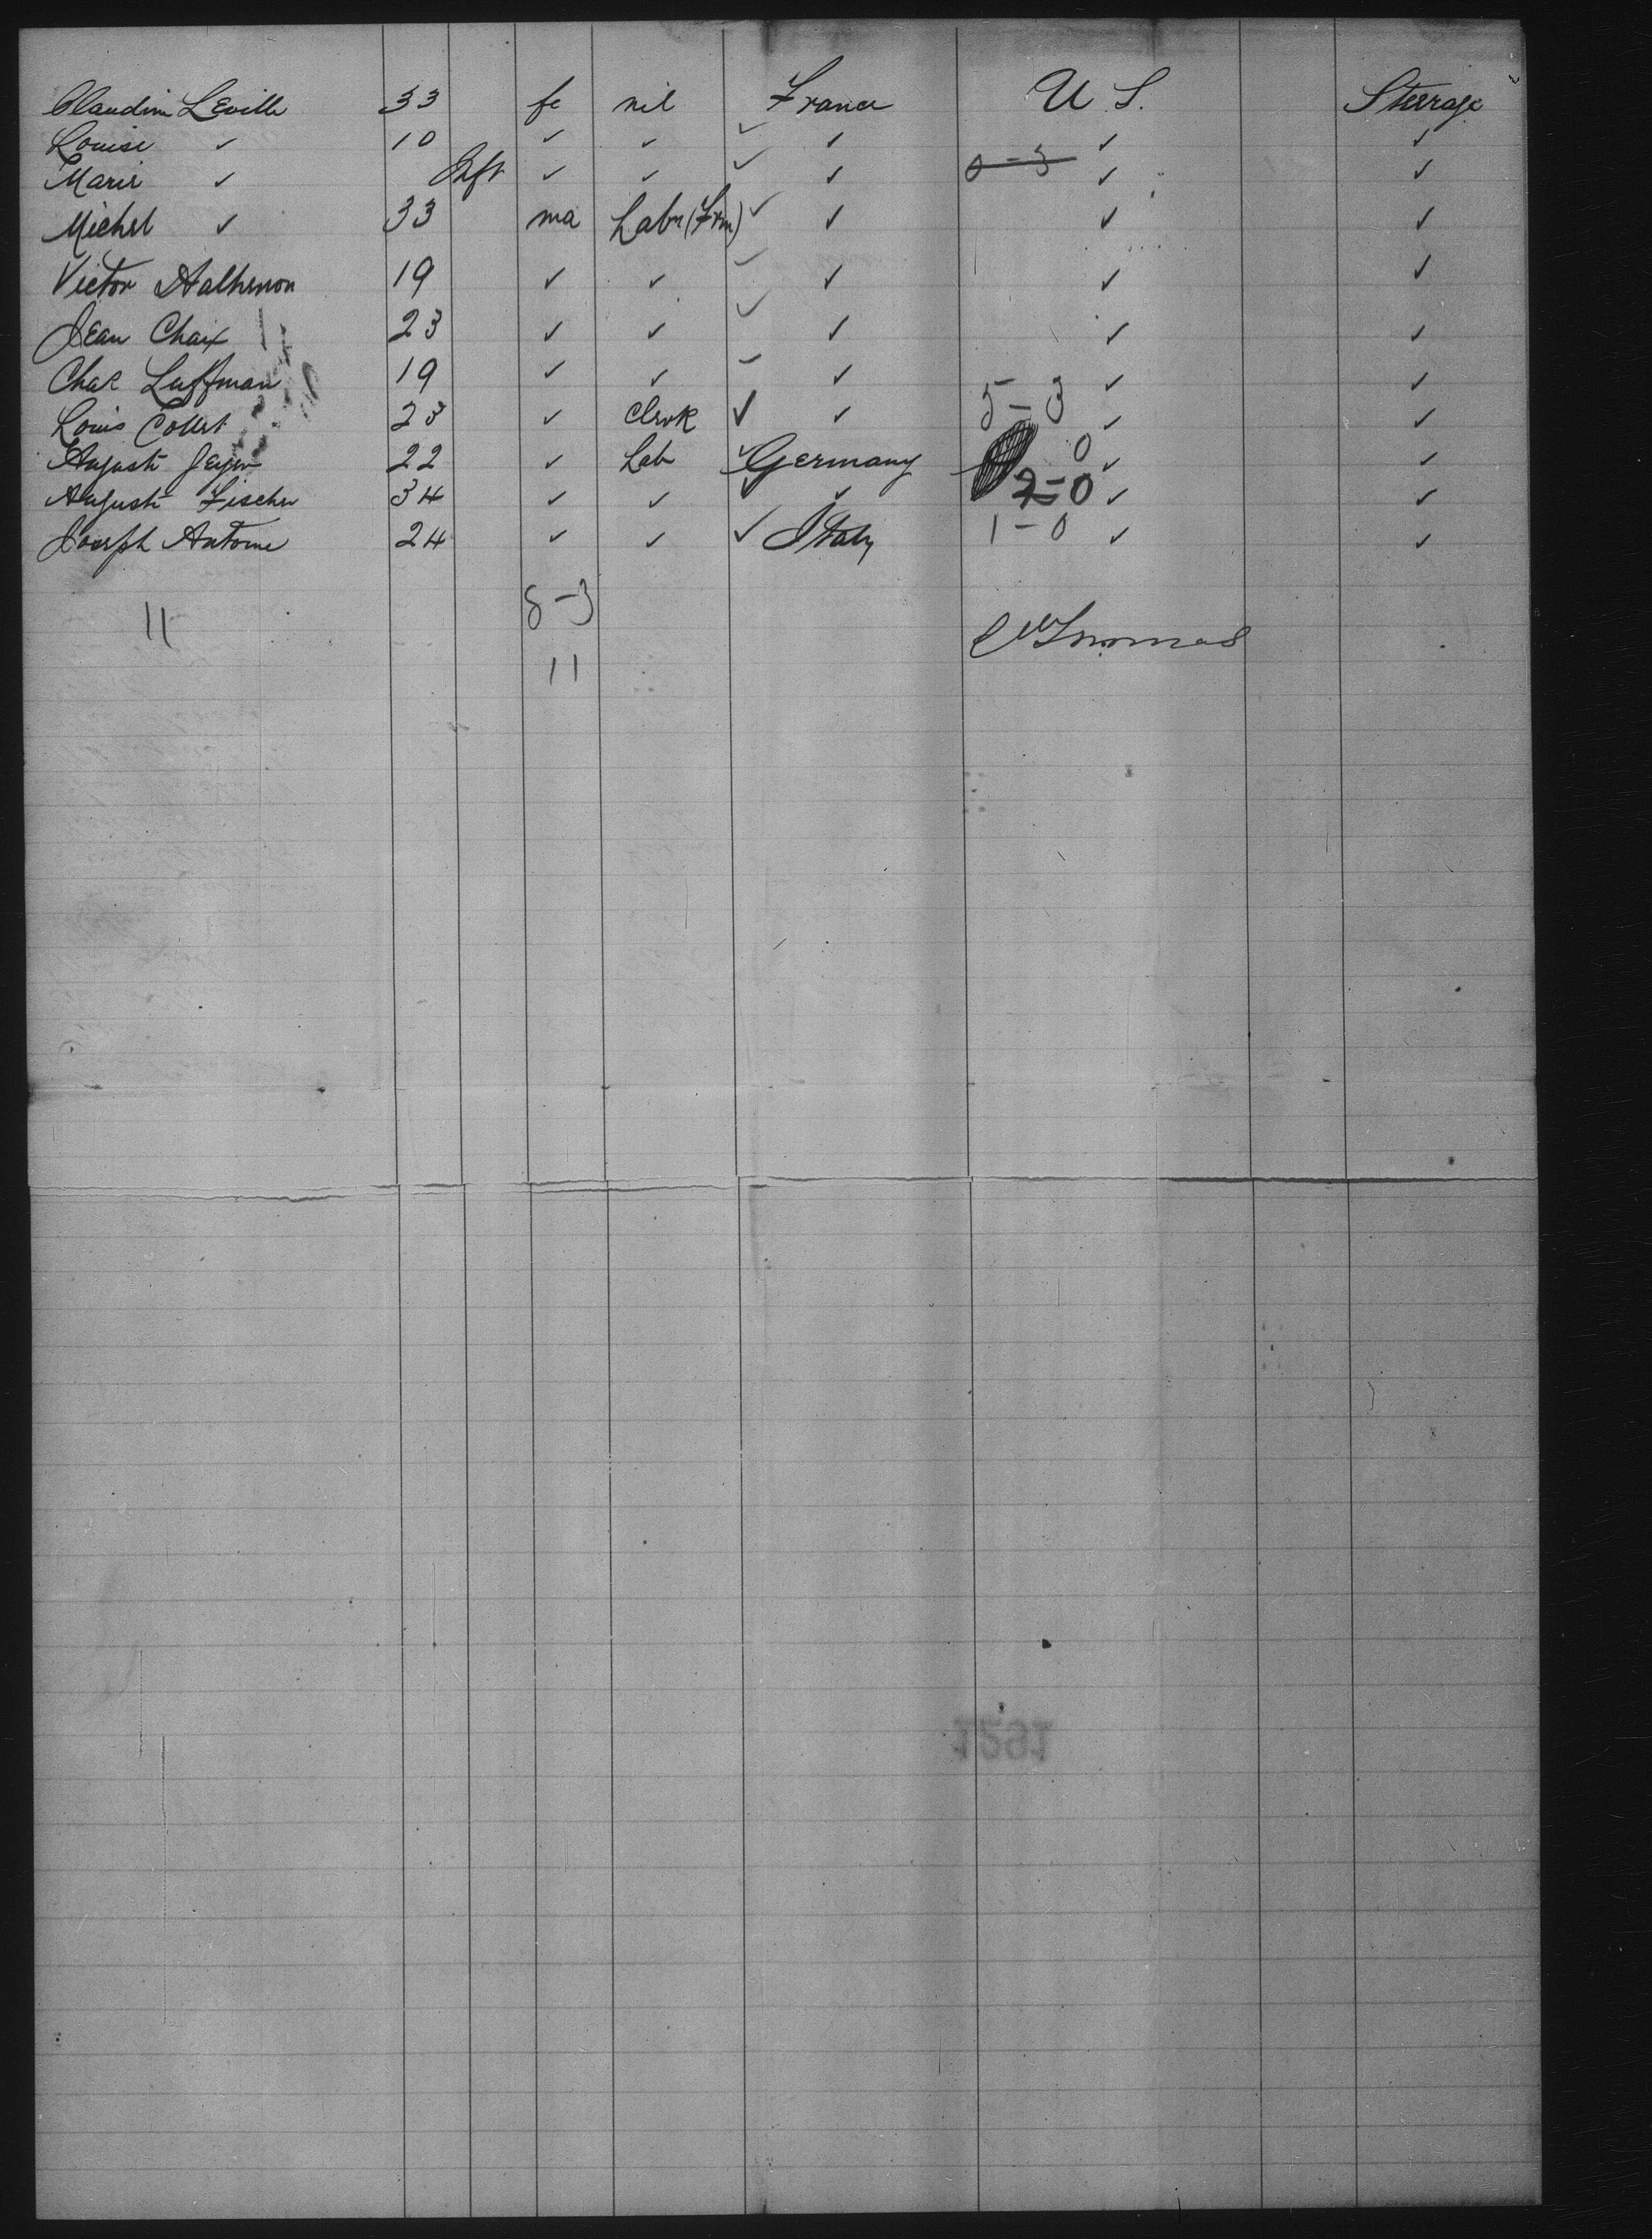 Claudine Leville 33 fe nil France U S. Steerage
Louise ✓ 10 ✓ ✓ ✓ ✓ ✓ ✓
Marie ✓ Inft ✓ ✓ ✓ ✓ 0-3 ✓ ✓
Michel ✓ 33 ma Labr (Frm) ✓ ✓ ✓ ✓
Victor 19 ✓ ✓ ✓ ✓ ✓ ✓
Jean Chaix 23 ✓ ✓ ✓ ✓ ✓ ✓
Chas Luffman 19 ✓ ✓ ✓ ✓ ✓ ✓
Louis Collet 23 ✓ Clerk ✓ ✓ 5-3 ✓ ✓
August 22 ✓ Lab ✓ Germany 0 ✓ ✓
August Fischer 34 ✓ ✓ ✓ ✓ 2-0 ✓ ✓
Joseph Antoine 24 ✓ ✓ ✓ Italy 1-0 ✓ ✓
11 8-3
11
1291